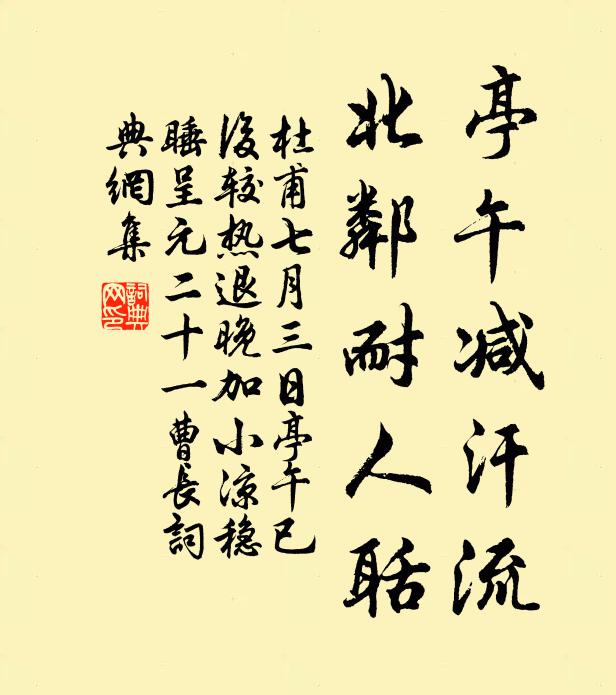 亭午减汗流
北鄰耐人聒
杜甫七月三日亭午已
後较热退晚加小凉稳
睡呈元二十一曹长詞
典網集
詞典
网印